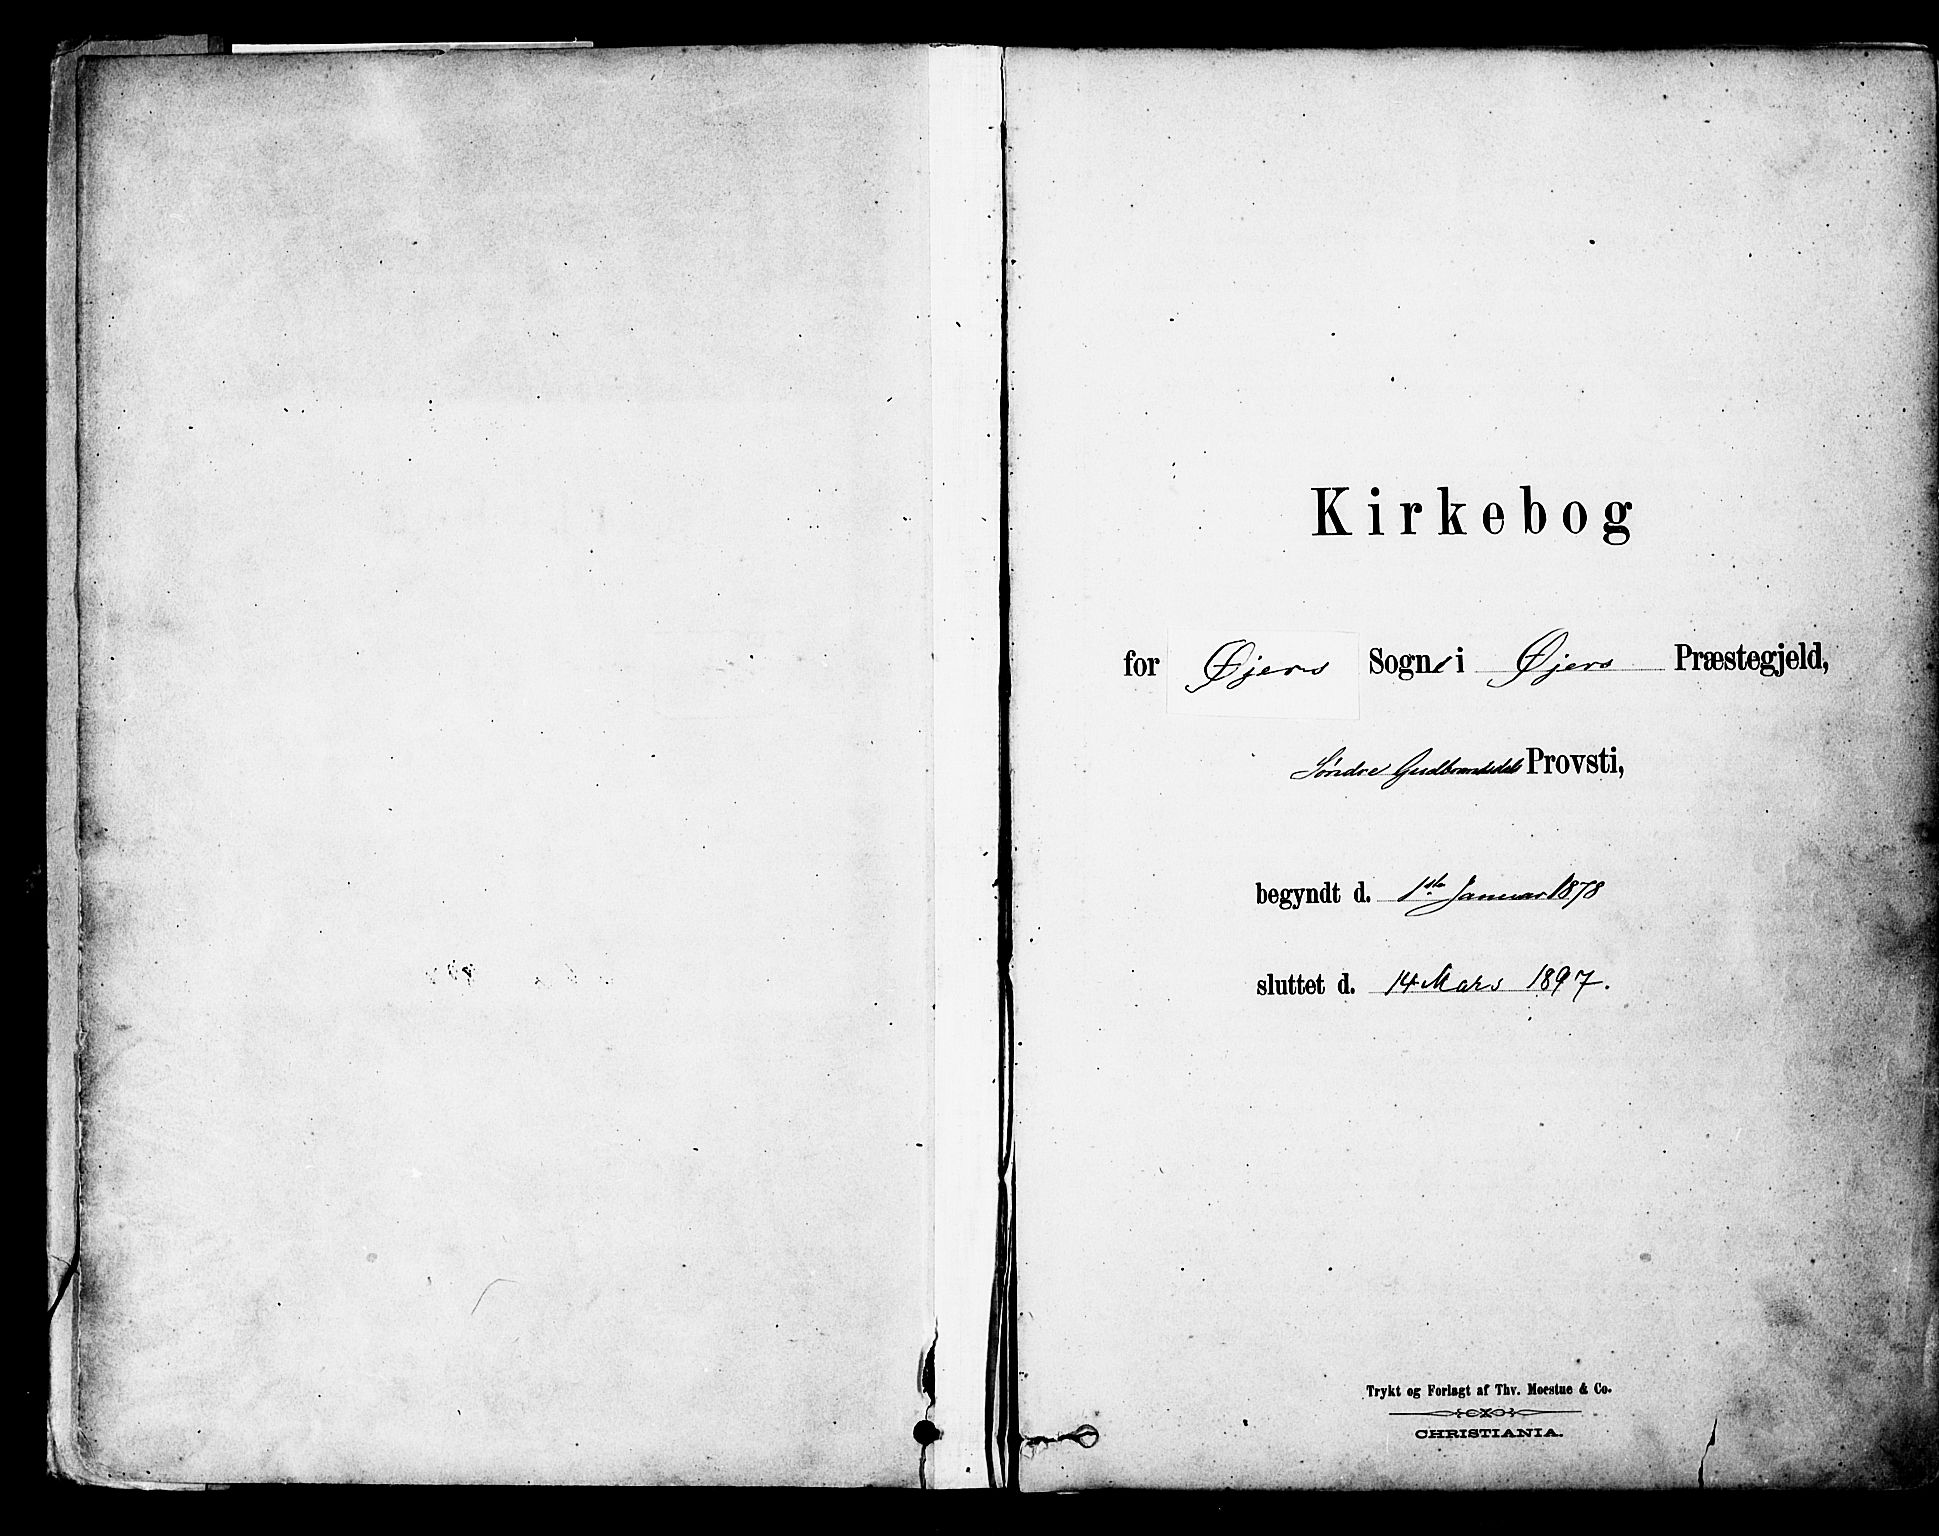 Kirkebog
for Øjers Sogn i Øjers Præstegjeld,
Søndre Gudbrandsdals Provsti,
begyndt d. 1ste Januar 1878
sluttet d. 14 Mars 1897.
Trykt og Forlagt af Thv. Moestue & Co.
CHRISTIANIA.